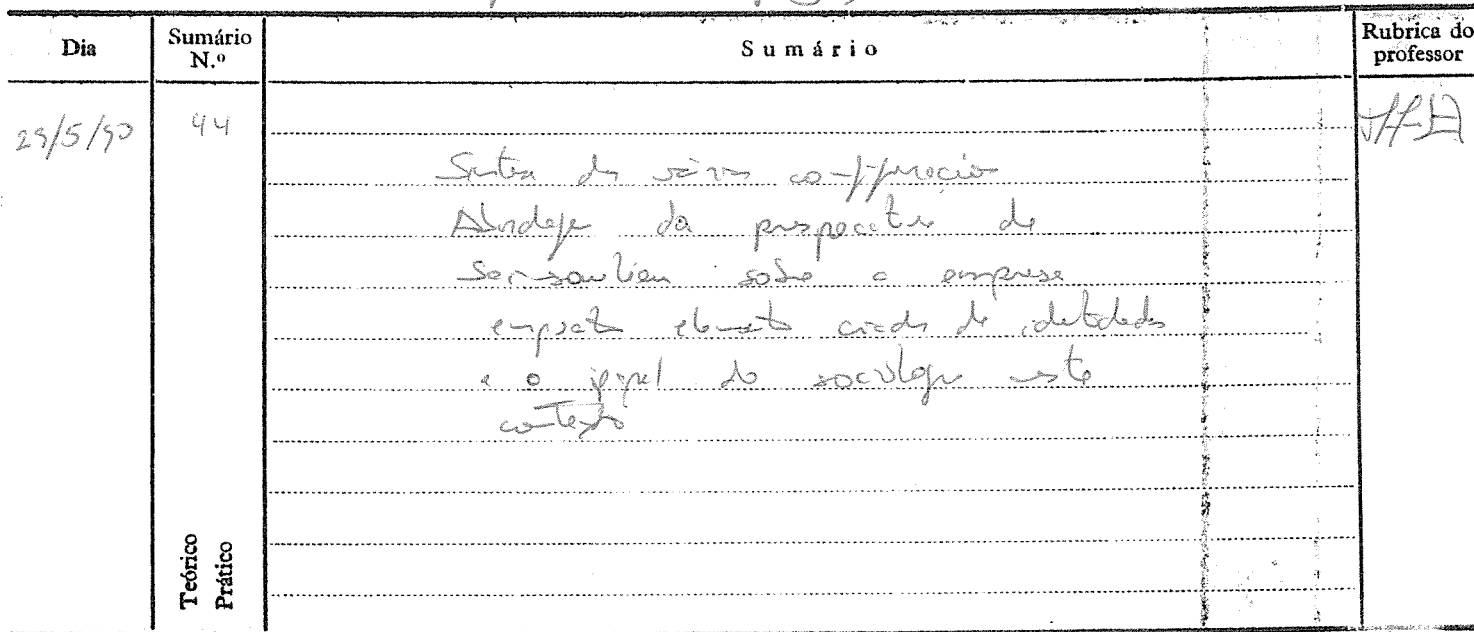 Dia
Sumário N.º
Sumário
Rubrica do professor
29/5/90
44
Síntese das várias
Abordagem da perspectiva de
Sainsaulieu sobre a empresa
enquanto elemento criador de identidades
e o papel do sociólogo neste
contexto
Teórico
Prático